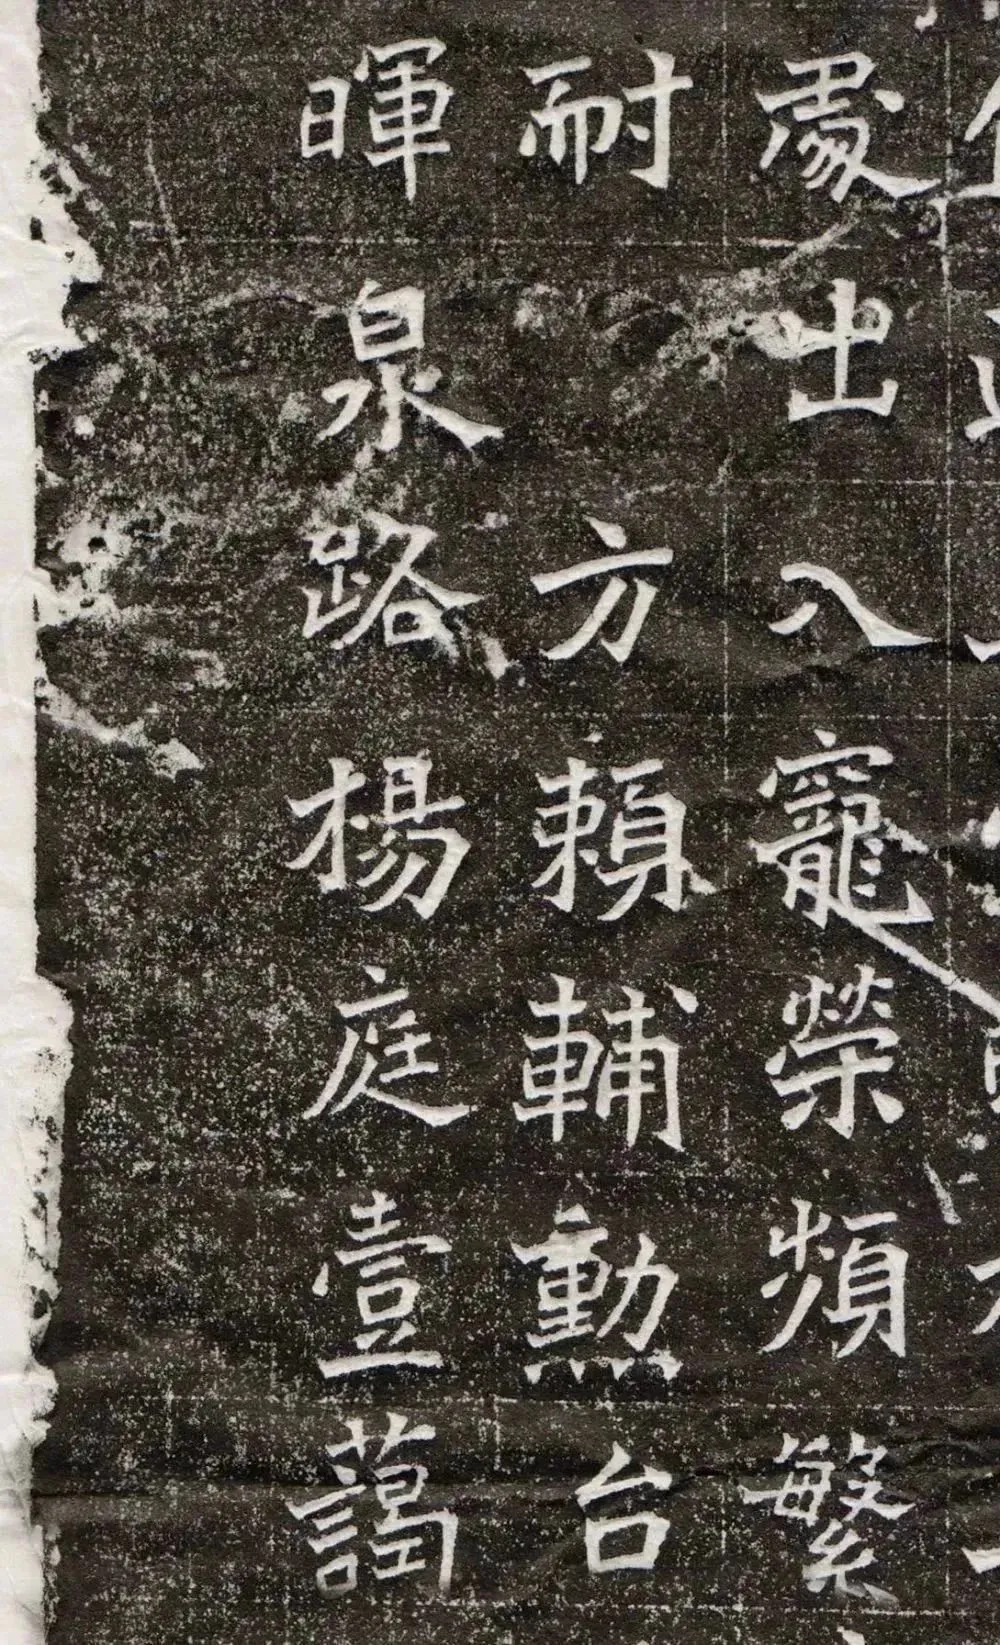 處出入寵榮頻繁
耐 方賴輔勳台
暉泉路楊庭壹蔼